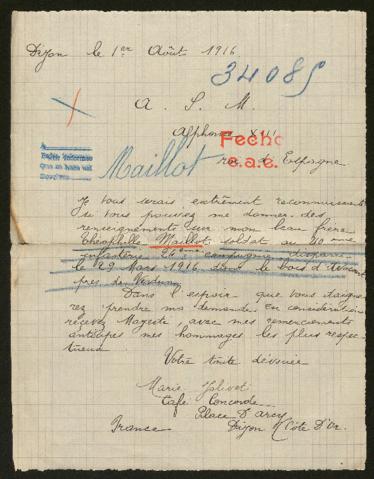 Dijon le 1er Août 1916
34085
A. S. M.
Alphonse XIII
Fecho
e.a.e.
roi d'Espagne
Maillot
Je vous serais extrêment reconnaissante
si vous pouvez me donner des
renseignements sur mon beau frère
Théophile Maillot soldat au
infanterie compagnie disparu
le 29 Mars 1916 dans le bois d'Avocourt
près de Verdun
Dans l'espoir que vous daigne
rez prendre ma demande en considération
recevez Majesté, avec mes remerciements
anticipés mes hommages les plus respec
tueux
Votre toute dévouée
Marie Jolivet
Café Concorde
Place D'arcy
France Dijon Côte D'Or.